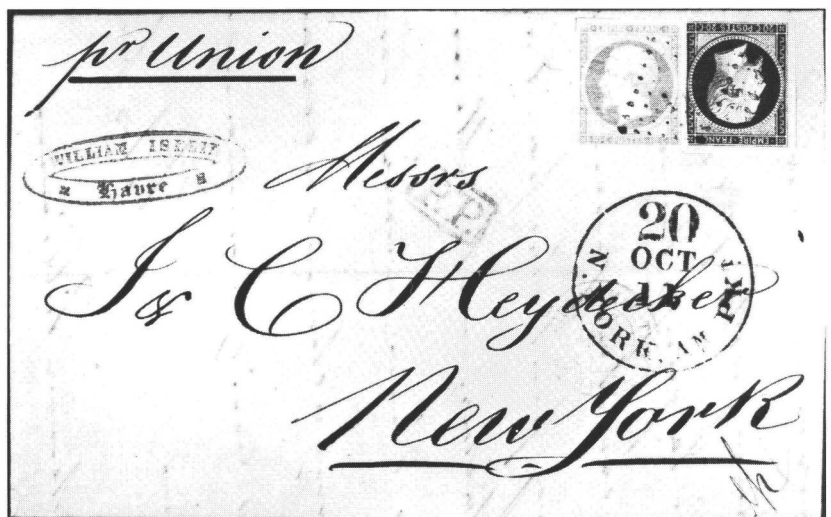 pr Union
WILLIAM ISELIN
Havre
Messrs
P.P.
J & C Heydecker
New York
20
OCT
N. YORK AM. PKT.
EMPIRE FRANC